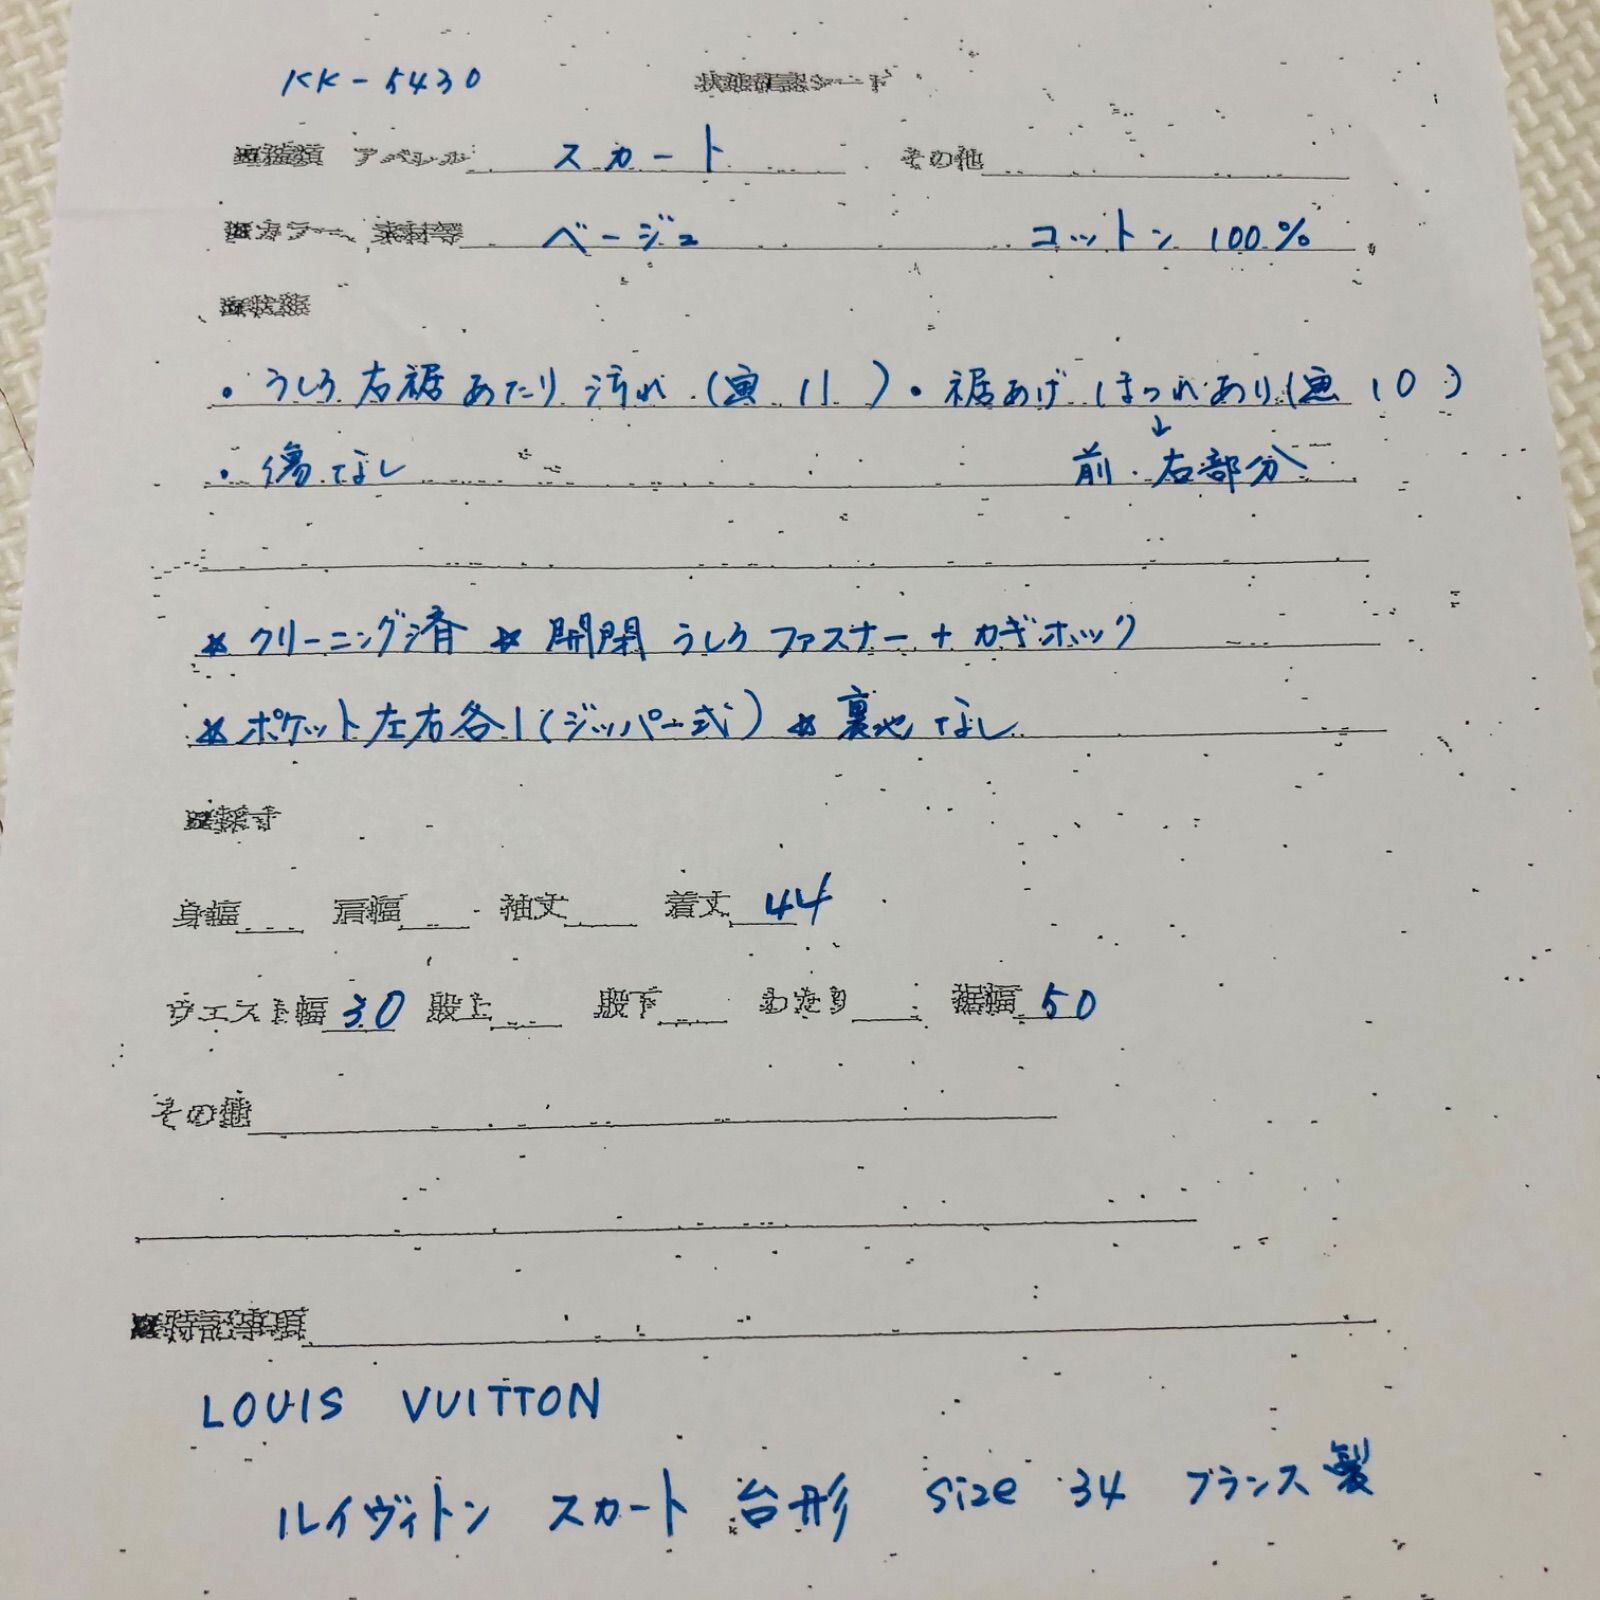 KK-5430 状態確認シート
■種類 アパレル スカート その他
■カラー、素材等 ベージュ コットン 100%
■状態
・うしろ右裾あたり汚れ(画 11)・裾あげほつれあり(画 10)
↓
・傷なし 前.右部分
*クリーニング済 *開閉 うしろファスナー+カギホック
*ポケット左右各1(ジッパー式) *裏地なし
■採寸
身幅 肩幅 袖丈 着丈 44
ウエスト幅 30 股上 股下 わたり 裾幅 50
その他
■特記事項
LOUIS VUITTON
ルイヴィトン スカート 台形 size 34 フランス製